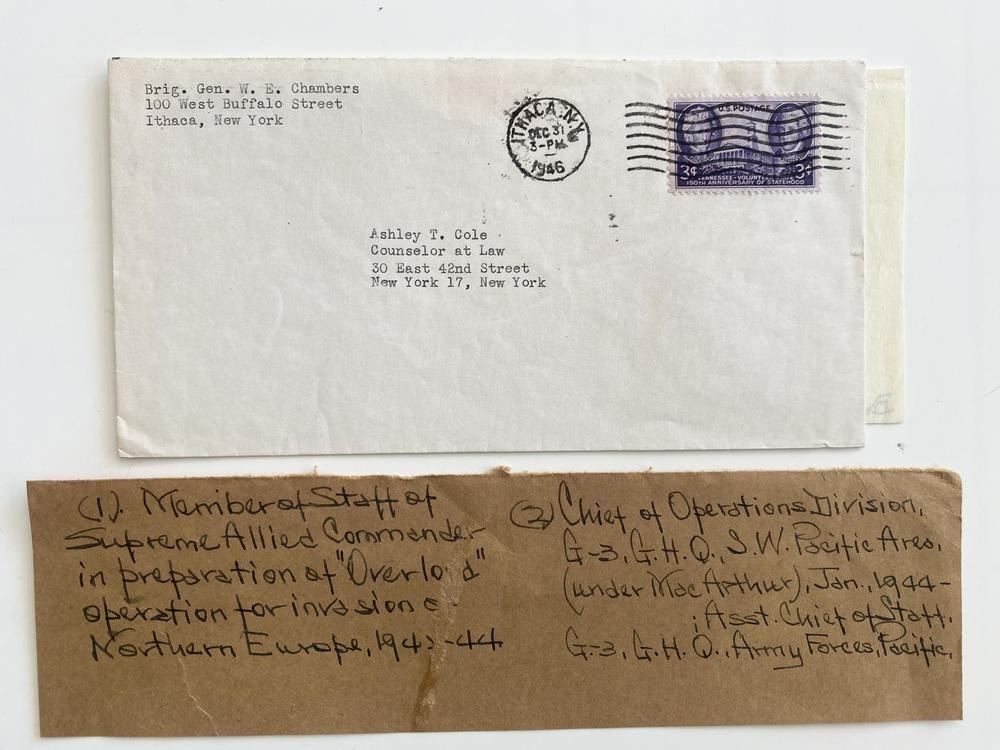 Brig. Gen. W. E. Chambers
100 West Buffalo Street
Ithaca, New York
ITHACA, N.Y.
DEC 31
3-PM
1946
U.S. POSTAGE
3¢ 3¢
TENNESSEE - VOLUNTEER
150TH ANNIVERSARY OF STATEHOOD
Ashley T. Cole
Counselor at Law
30 East 42nd Street
New York 17, New York
(1). Member of Staff of
Supreme Allied Commander
in preparation of "Overlord"
operation for invasion
Northern Europe, 194 -44
(2) Chief of Operations Division,
G-3, G.H.Q., S.W. Pacific Area,
(under MacArthur), Jan., 1944-
; Asst. Chief of Staff,
G-3, G.H.Q., Army Forces, Pacific.